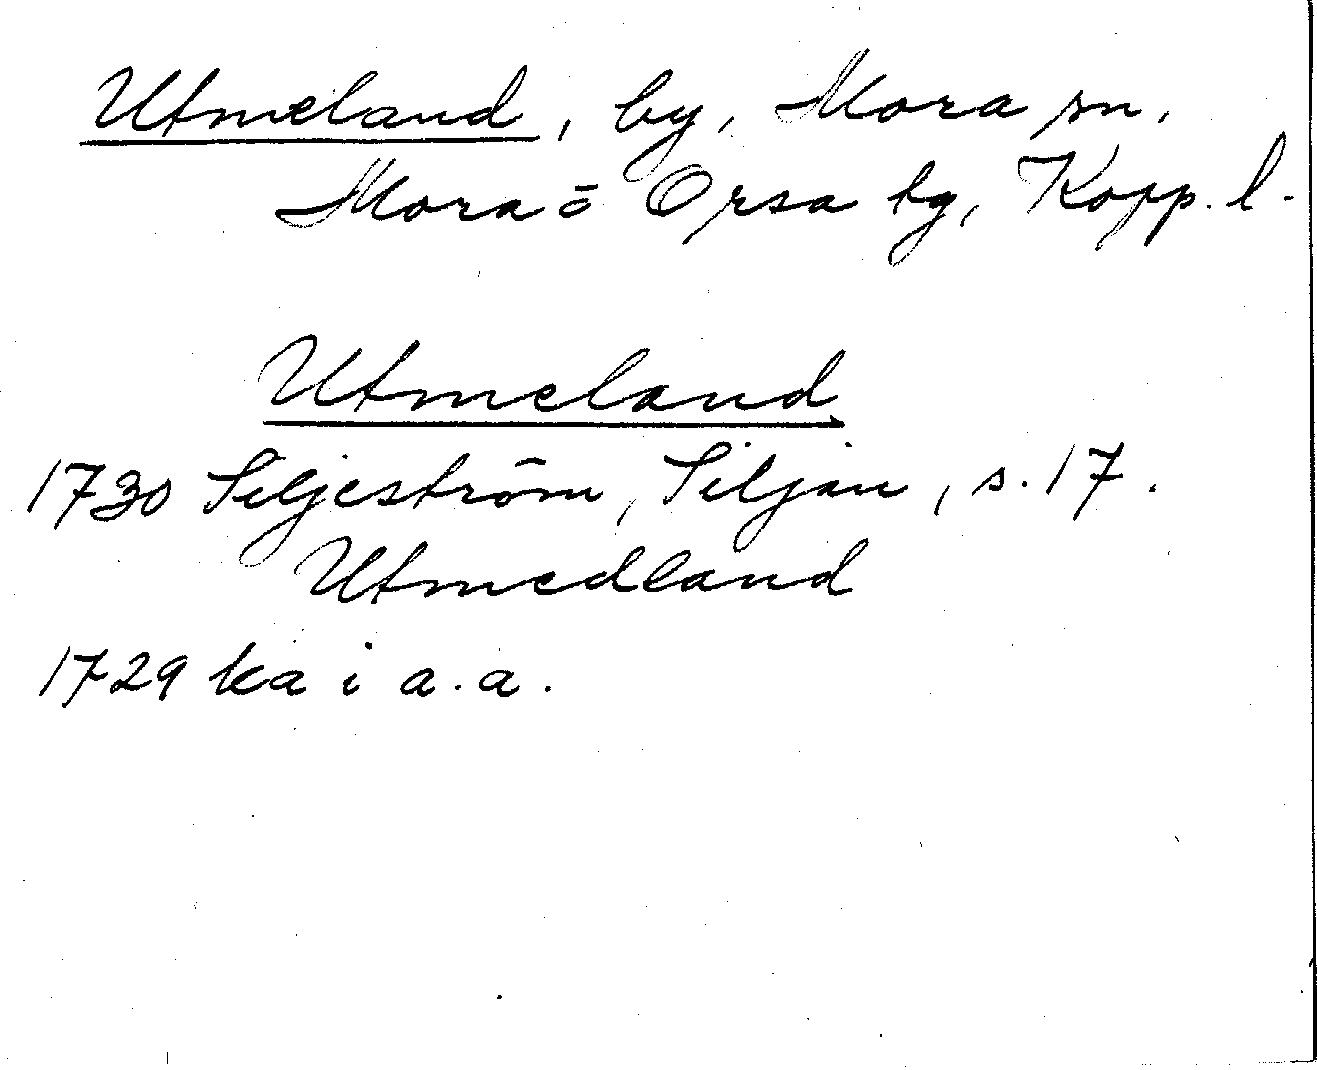 Utmeland, by, Mora sn.
Mora o Orsa tg, Kopp. l.
Utmeland
1730 Siljeström, Siljan, s. 17.
Utmedland
1729 ka i a.a.